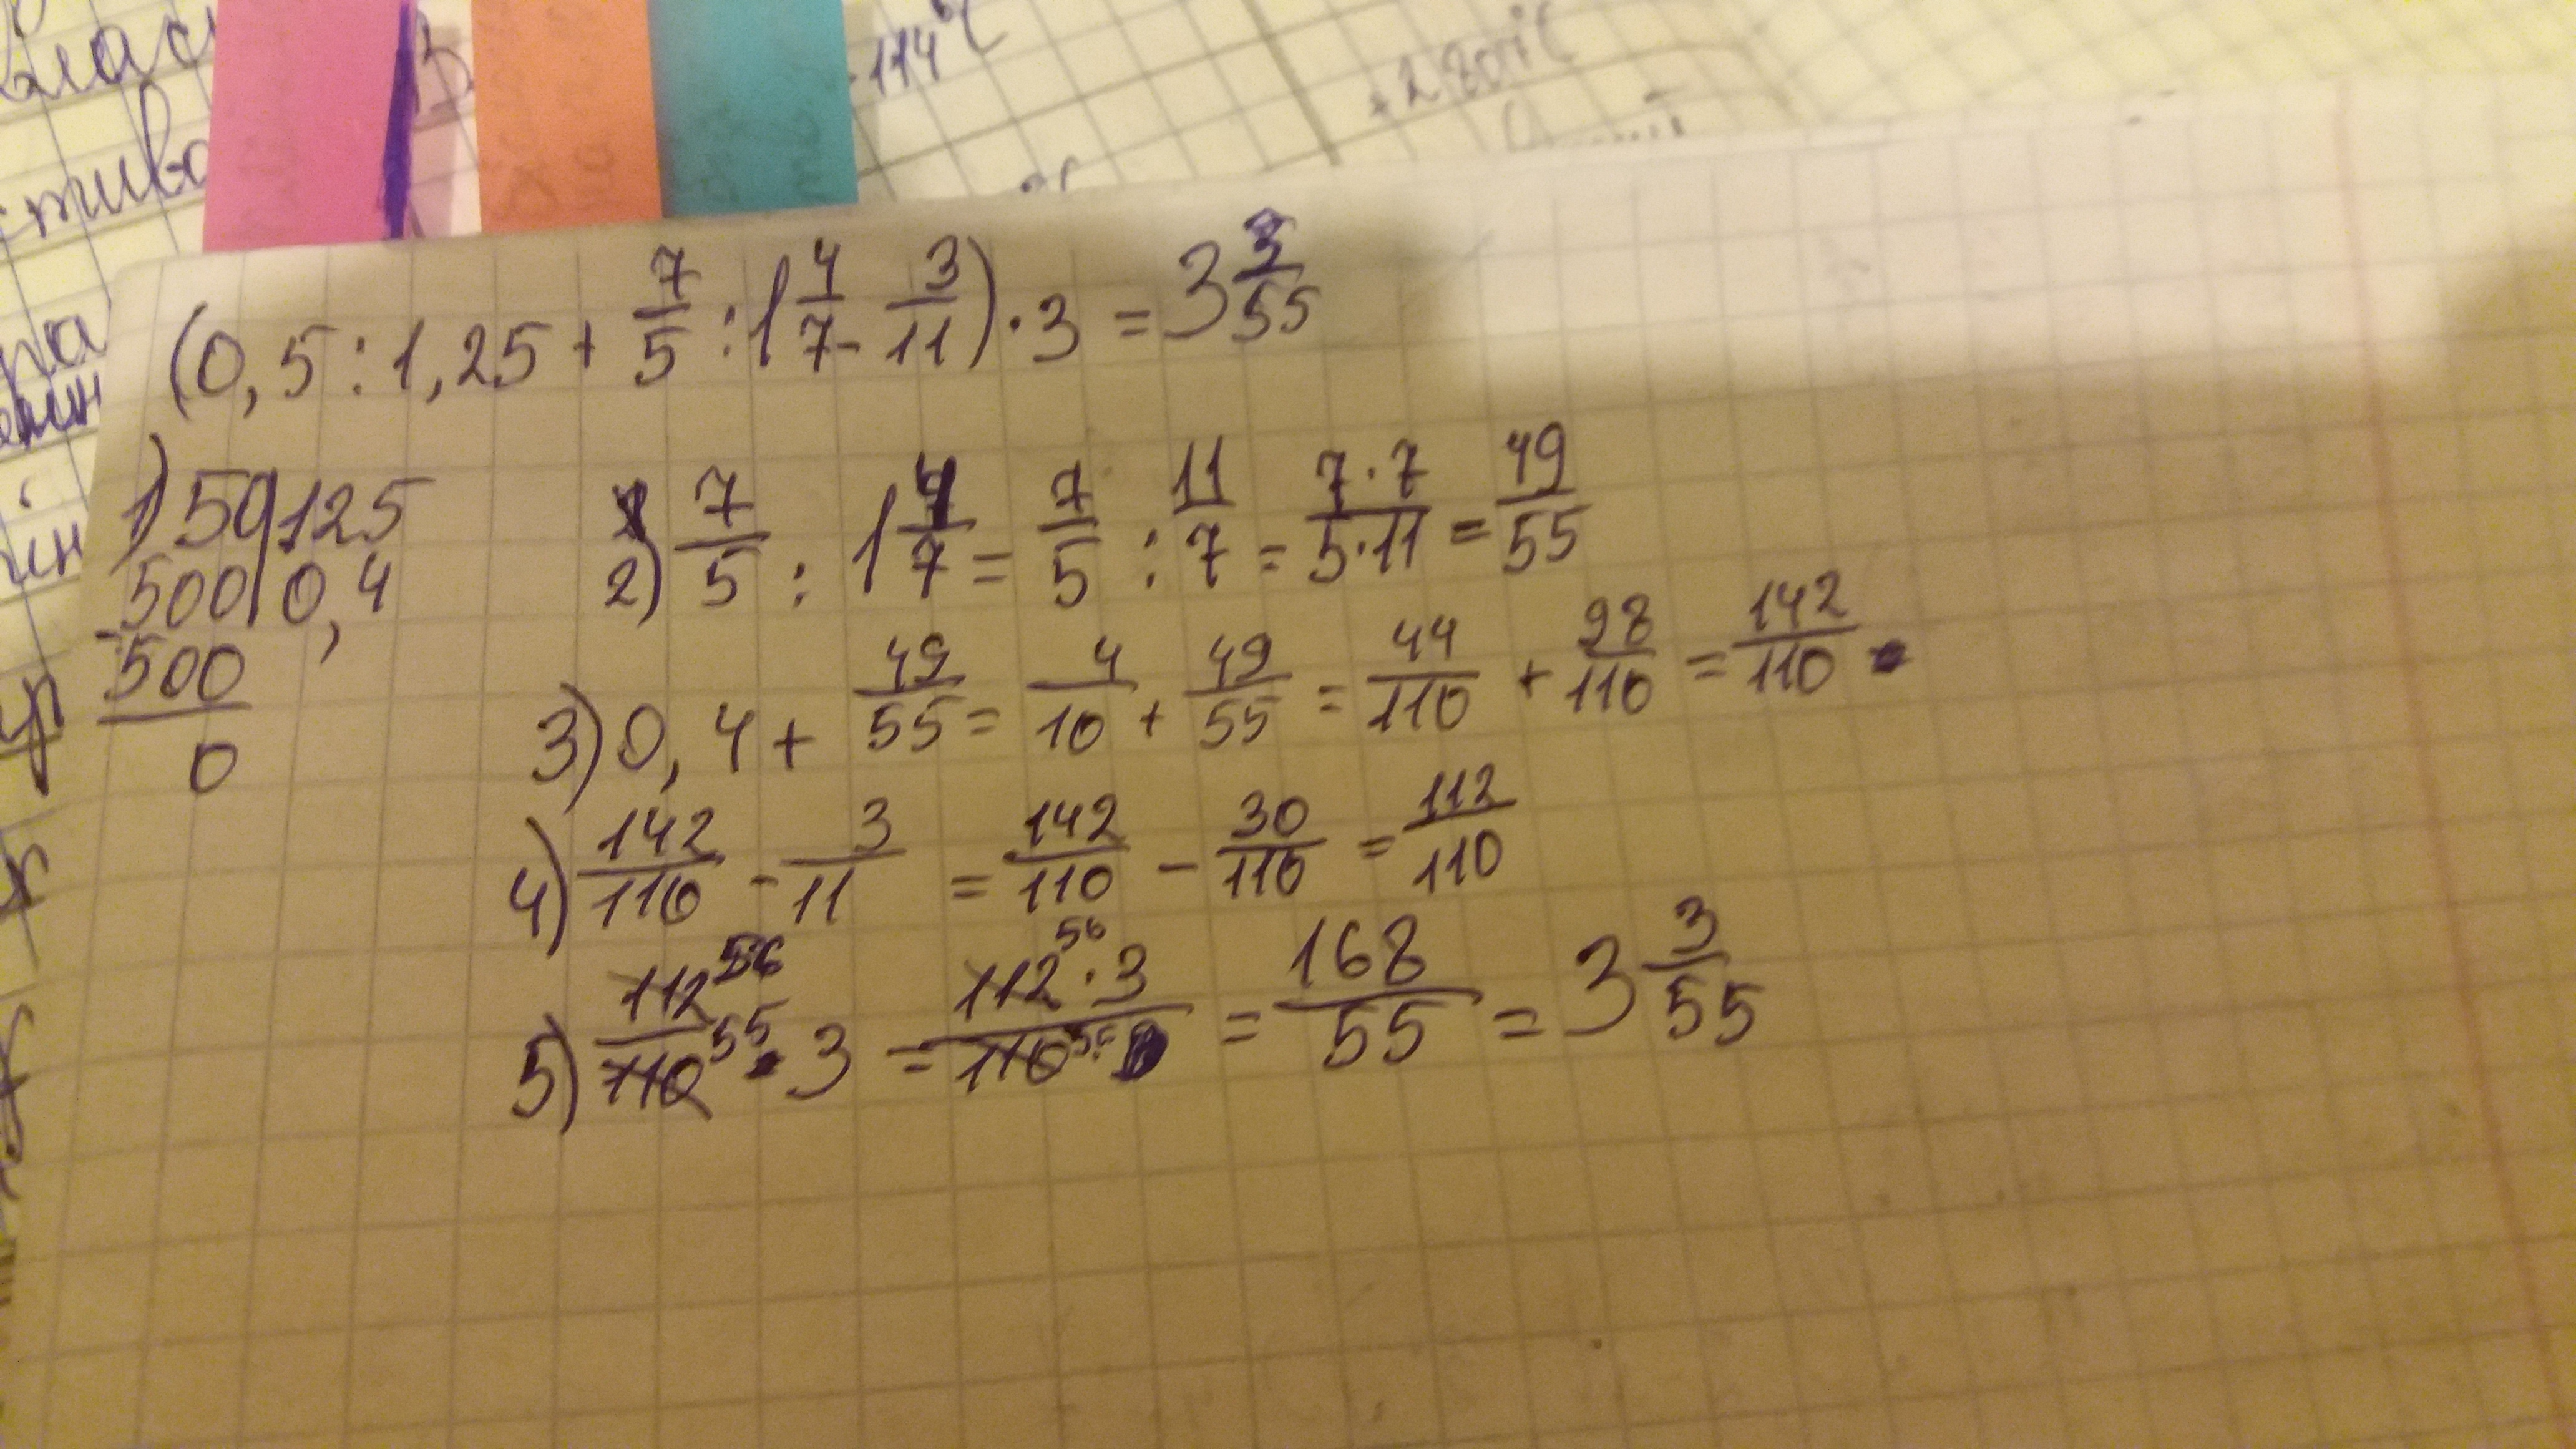 -114°C
(0,5:1,25 + 7/5 : 1 4/7 - 3/11) · 3 = 3 3/55
1) 50 | 125
500 | 0,4
- 500
0
2) 7/5 : 1 4/7 = 7/5 : 11/7 = 7·7/5·11 = 49/55
3) 0,4 + 49/55 = 4/10 + 49/55 = 44/110 + 98/110 = 142/110
4) 142/110 - 3/11 = 142/110 - 30/110 = 112/110
5) 112 56/110 55 · 3 = 112 56 · 3/110 55 = 168/55 = 3 3/55